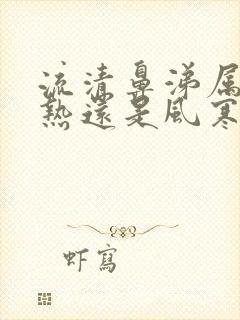 流清鼻涕属
熱還是風寒
虾寫